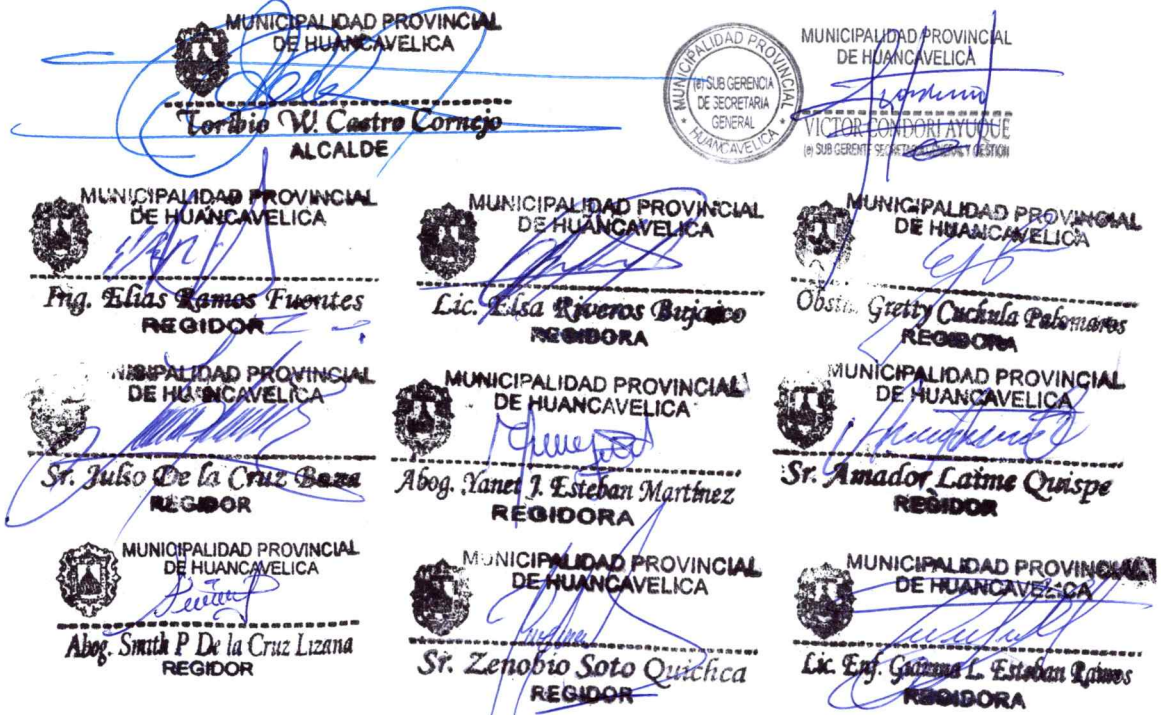 MUNICIPALIDAD PROVINCIAL
DE HUANCAVELICA
Toribio W. Castro Cornejo
ALCALDE
MUNICIPALIDAD PROVINCIAL
(e) SUB GERENCIA
DE SECRETARIA
GENERAL
* HUANCAVELICA *
MUNICIPALIDAD PROVINCIAL
DE HUANCAVELICA
VICTOR CONDORI AYUQUE
(e) SUB GERENTE SECRETARIA GENERAL Y GESTION
MUNICIPALIDAD PROVINCIAL
DE HUANCAVELICA
Ing. Elias Ramos Fuentes
REGIDOR
MUNICIPALIDAD PROVINCIAL
DE HUANCAVELICA
Lic. Elsa Riveros Bujaico
REGIDORA
MUNICIPALIDAD PROVINCIAL
DE HUANCAVELICA
Gretty Cuchula Palomares
REGIDORA
MUNICIPALIDAD PROVINCIAL
DE HUANCAVELICA
Sr. Julso De la Cruz Baza
REGIDOR
MUNICIPALIDAD PROVINCIAL
DE HUANCAVELICA
Abog. Yanet J. Esteban Martínez
REGIDORA
MUNICIPALIDAD PROVINCIAL
DE HUANCAVELICA
Sr. Amador Laime Quispe
REGIDOR
MUNICIPALIDAD PROVINCIAL
DE HUANCAVELICA
Abog. Smith P De la Cruz Lizana
REGIDOR
MUNICIPALIDAD PROVINCIAL
DE HUANCAVELICA
Sr. Zenobio Soto Quichca
REGIDOR
MUNICIPALIDAD PROVINCIAL
DE HUANCAVELICA
Lic. Enf. Gianna L. Esteban Ramos
REGIDORA